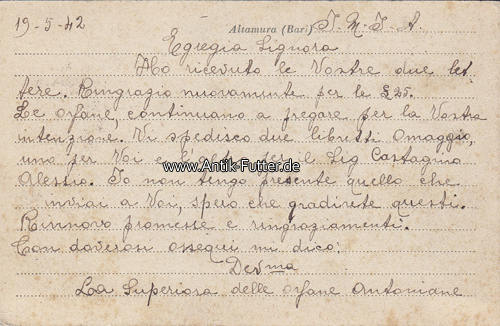 19-5-42 Altamura (Bari) I. M. I. A.
Egregia Signora
Ho ricevuto le Vostre due let
tere. Ringrazio nuovamente per le £ 25.
Le orfane, continuano a pregare per la Vostra
intenzione. Vi spedisco due libretti Omaggio,
una per Voi e l' per il Sig Castagnino
www.Antik-Futter.de
Alessio. Io non tengo presente quello che
inviai a Voi, spero che gradirete questi.
Rinnovo promesse e ringraziamenti.
Con doverosi ossequi mi dico:
Dev ma
La Superiora delle orfane Antoniane